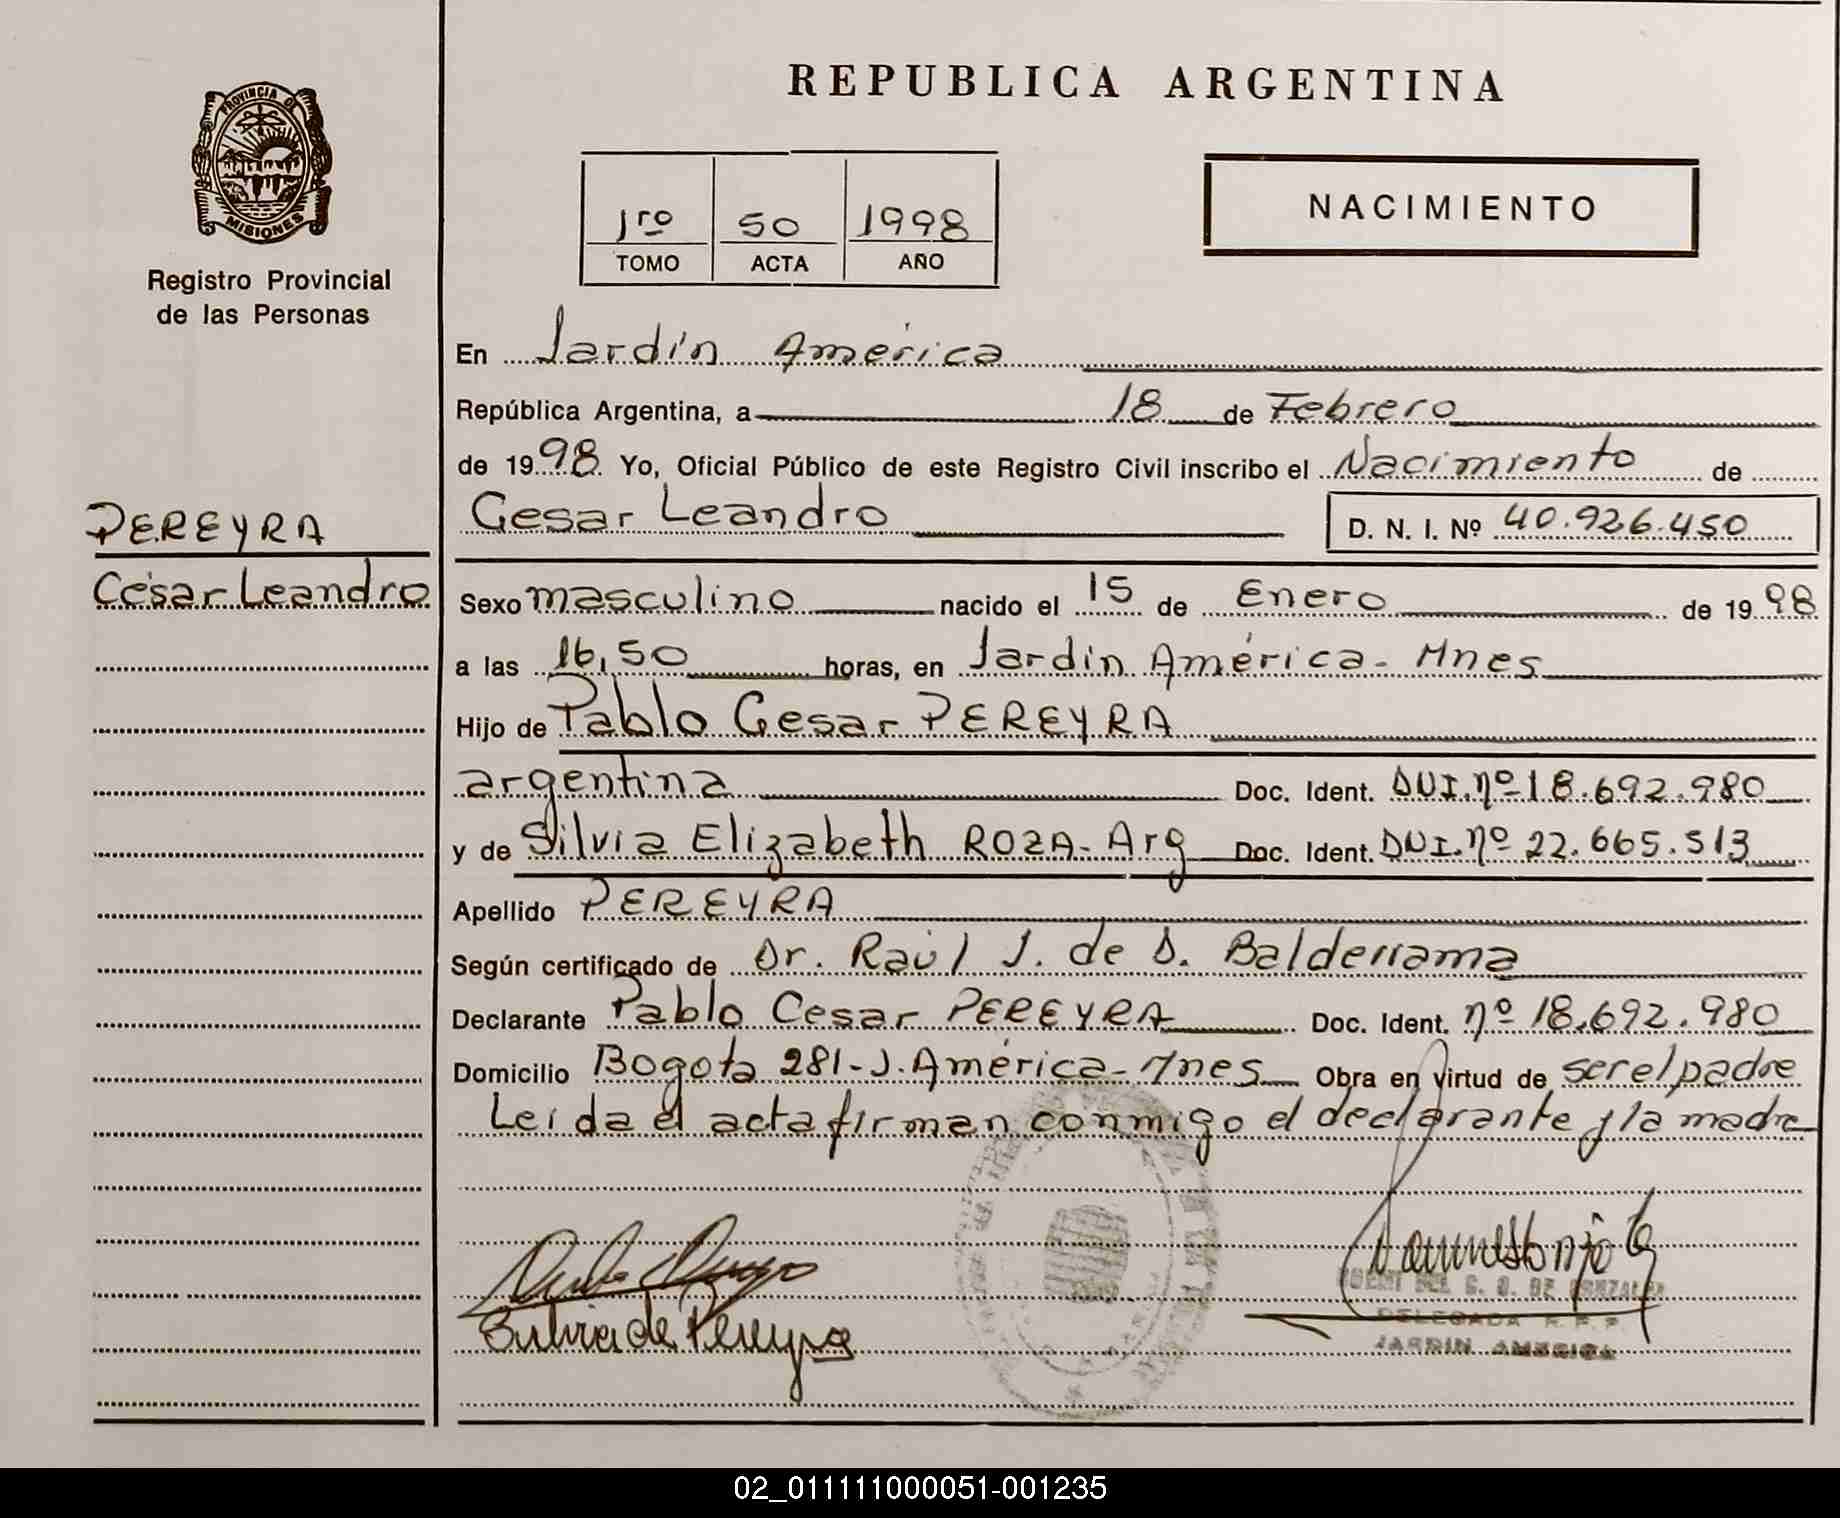 REPUBLICA ARGENTINA
PROVINCIA DE
MISIONES
Registro Provincial
de las Personas
1ro 50 1998
TOMO ACTA AÑO
NACIMIENTO
En Jardín América
República Argentina, a 18 de Febrero
de 1998 Yo, Oficial Público de este Registro Civil inscribo el Nacimiento de
Cesar Leandro D. N. I. Nº 40.926.450
PEREYRA
César Leandro
Sexo masculino nacido el 15 de Enero de 1998
a las 16,50 horas, en Jardín América - Mnes
Hijo de Pablo Cesar PEREYRA
argentina Doc. Ident. DNI. nº 18.692.980
y de Silvia Elizabeth ROZA - Arg Doc. Ident. DNI. nº 22.665.513
Apellido PEREYRA
Según certificado de Dr. Raúl J. de D. Balderrama
Declarante Pablo Cesar PEREYRA Doc. Ident. nº 18.692.980
Domicilio Bogota 281 - J. América - Mnes Obra en virtud de ser el padre
Leída el acta firman conmigo el declarante y la madre
Silvia de Pereyra
DELEGADA R. P. P.
JARDIN AMERICA
02_011111000051-001235